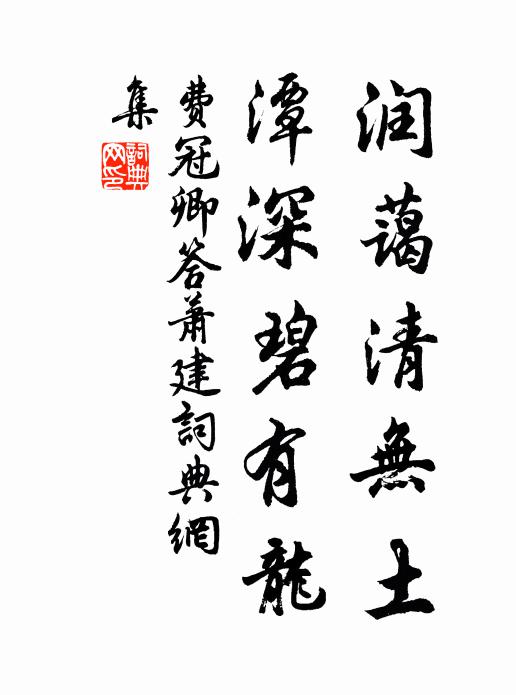 润蔼清無土
潭深碧有龍
費冠卿答萧建詞典網
集
詞典網印